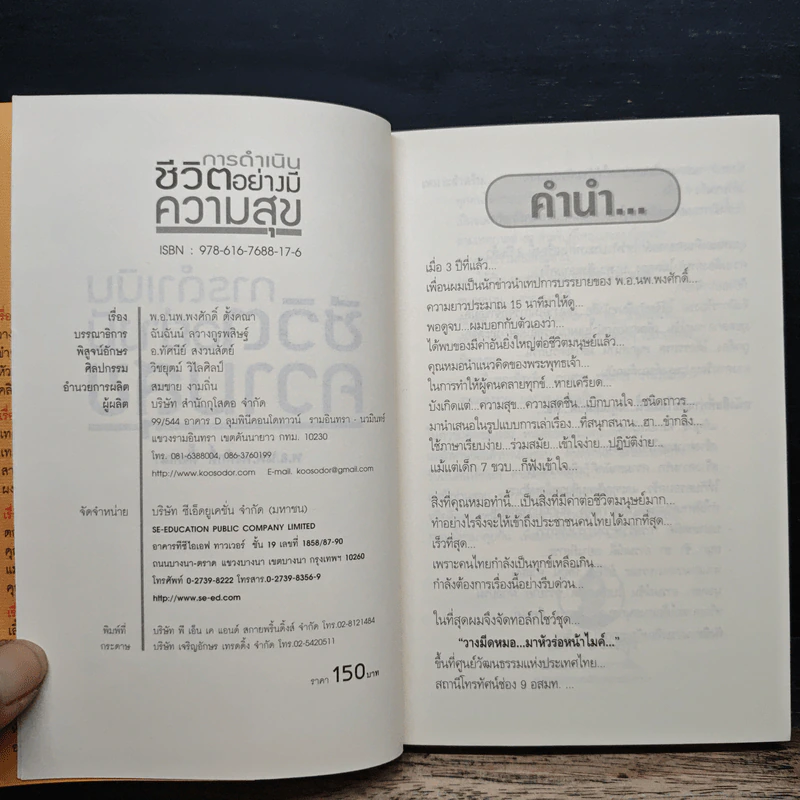 การดำเนิน
ชีวิตอย่างมี
ความสุข
ISBN : 978-616-7688-17-6
เรื่อง พ.อ.นพ.พงศักดิ์ ตั้งคณา
บรรณาธิการ ฉันฉันน์ ลวางกูรพสิษฐ์
พิสูจน์อักษร อ.ทัศนีย์ สงวนสัตย์
ศิลปกรรม วิชยุตม์ วิไลศิลป์
อำนวยการผลิต สมชาย งามถิ่น
ผู้ผลิต บริษัท สำนักกูโสดอ จำกัด
99/544 อาคาร D ลุมพินีคอนโดทาวน์ รามอินทรา - นวมินทร์
แขวงรามอินทรา เขตคันนายาว กทม. 10230
โทร. 081-6388004, 086-3760199
http://www.koosodor.com E-mail. koosodor@gmail.com
จัดจำหน่าย บริษัท ซีเอ็ดยูเคชั่น จำกัด (มหาชน)
SE-EDUCATION PUBLIC COMPANY LIMITED
อาคารทีซีไอเอฟ ทาวเวอร์ ชั้น 19 เลขที่ 1858/87-90
ถนนบางนา-ตราด แขวงบางนา เขตบางนา กรุงเทพฯ 10260
โทรศัพท์ 0-2739-8222 โทรสาร.0-2739-8356-9
http://www.se-ed.com
พิมพ์ที่ บริษัท พี เอ็น เค แอนด์ สกายพริ้นติ้งส์ จำกัด โทร.02-8121484
กระดาษ บริษัท เจริญอักษร เทรดดิ้ง จำกัด โทร.02-5420511
ราคา 150 บาท
คำนำ...
เมื่อ 3 ปีที่แล้ว...
เพื่อนผมเป็นนักข่าวนำเทปการบรรยายของ พ.อ.นพ.พงศักดิ์....
ความยาวประมาณ 15 นาทีมาให้ดู...
พอดูจบ... ผมบอกกับตัวเองว่า...
ได้พบของมีค่าอันยิ่งใหญ่ต่อชีวิตมนุษย์แล้ว...
คุณหมอนำแนวคิดของพระพุทธเจ้า...
ในการทำให้ผู้คนคลายทุกข์...หายเครียด...
บังเกิดแต่...ความสุข...ความสดชื่น...เบิกบานใจ...ชนิดถาวร...
มานำเสนอในรูปแบบการเล่าเรื่อง...ที่สนุกสนาน...ฮา...ขำกลิ้ง...
ใช้ภาษาเรียบง่าย...ร่วมสมัย...เข้าใจง่าย...ปฏิบัติง่าย...
แม้แต่เด็ก 7 ขวบ...ก็ฟังเข้าใจ...
สิ่งที่คุณหมอทำนี้...เป็นสิ่งที่มีค่าต่อชีวิตมนุษย์มาก...
ทำอย่างไรจึงจะให้เข้าถึงประชาชนคนไทยได้มากที่สุด...
เร็วที่สุด...
เพราะคนไทยกำลังเป็นทุกข์เหลือเกิน...
กำลังต้องการเรื่องนี้อย่างรีบด่วน...
ในที่สุดผมจึงจัดทอล์กโชว์ชุด...
"วางมีดหมอ...มาหัวร่อหน้าไมค์..."
ขึ้นที่ศูนย์วัฒนธรรมแห่งประเทศไทย...
สถานีโทรทัศน์ช่อง 9 อสมท. ...